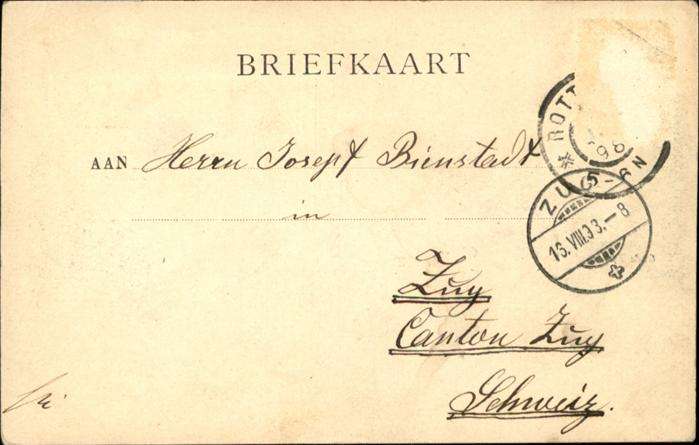 BRIEFKAART
AAN Herrn Josef Bienstadt
in
Zug
Canton Zug
Schweiz.
* ROTT
98
5-6N
ZUG
16.VIII.93.–8